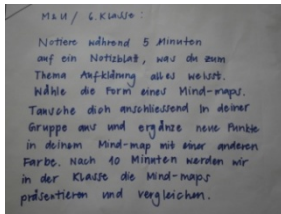 M&U / 6. Klasse :
Notiere während 5 Minuten
auf ein Notizblatt, was du zum
Thema Aufklärung alles weisst.
Wähle die Form eines Mind-maps.
Tausche dich anschliessend in deiner
Gruppe aus und ergänze neue Punkte
in deinem Mind-map mit einer anderen
Farbe. Nach 10 Minuten werden wir
in der Klasse die Mind-maps
präsentieren und vergleichen.